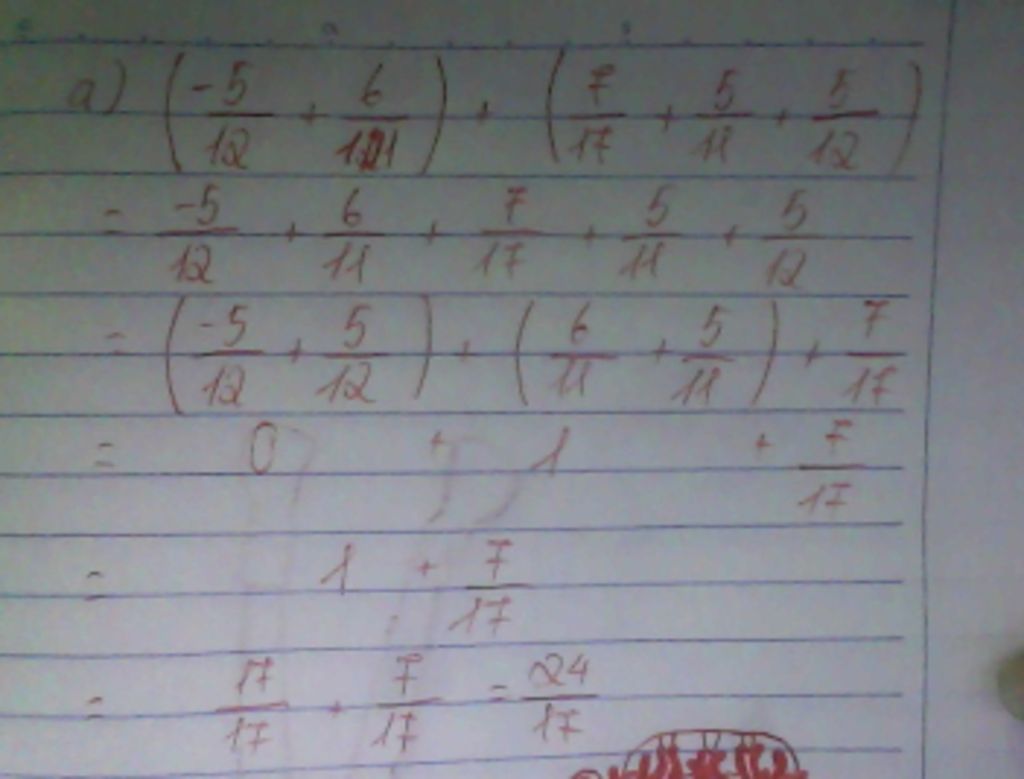 a) (-5/12 + 6/11) + (7/17 + 5/11 + 5/12)
= -5/12 + 6/11 + 7/17 + 5/11 + 5/12
= (-5/12 + 5/12) + (6/11 + 5/11) + 7/17
= 0 + 1 + 7/17
= 1 + 7/17
= 17/17 + 7/17 = 24/17